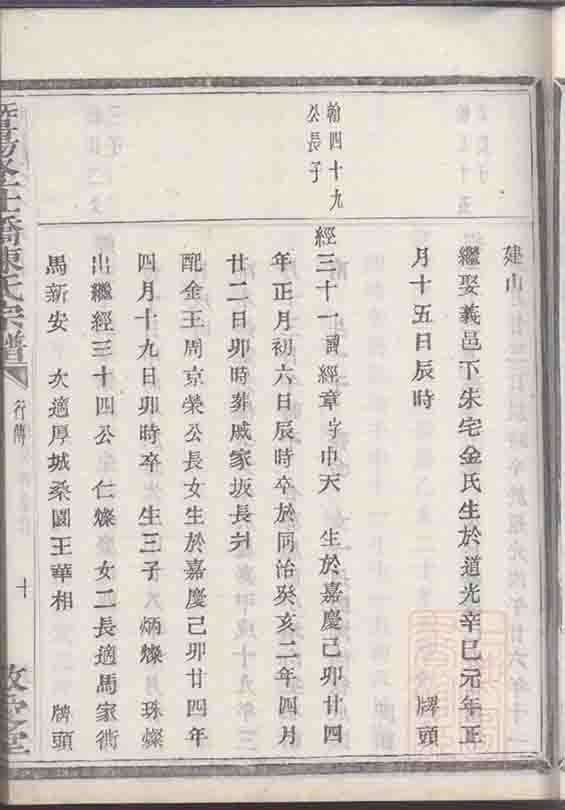 建山
繼娶義邑下朱宅金氏生於道光辛巳元年正
月十五日辰時 牌頭
翰四十九
公長子
經三十一 經章字巾天 生於嘉慶己卯廿四
年正月初六日辰時卒於同治癸亥二年四月
廿二日卯時葬戚家坂長爿
配金王周京榮公長女生於嘉慶己卯廿四年
四月十九日卯時卒 生三子 炳燦 珠燦
出繼經三十四公 仁燦 女二長適馬家衖
馬新安 次適厚城桑園王華相 牌頭
橋陳氏宗譜
行傳
十